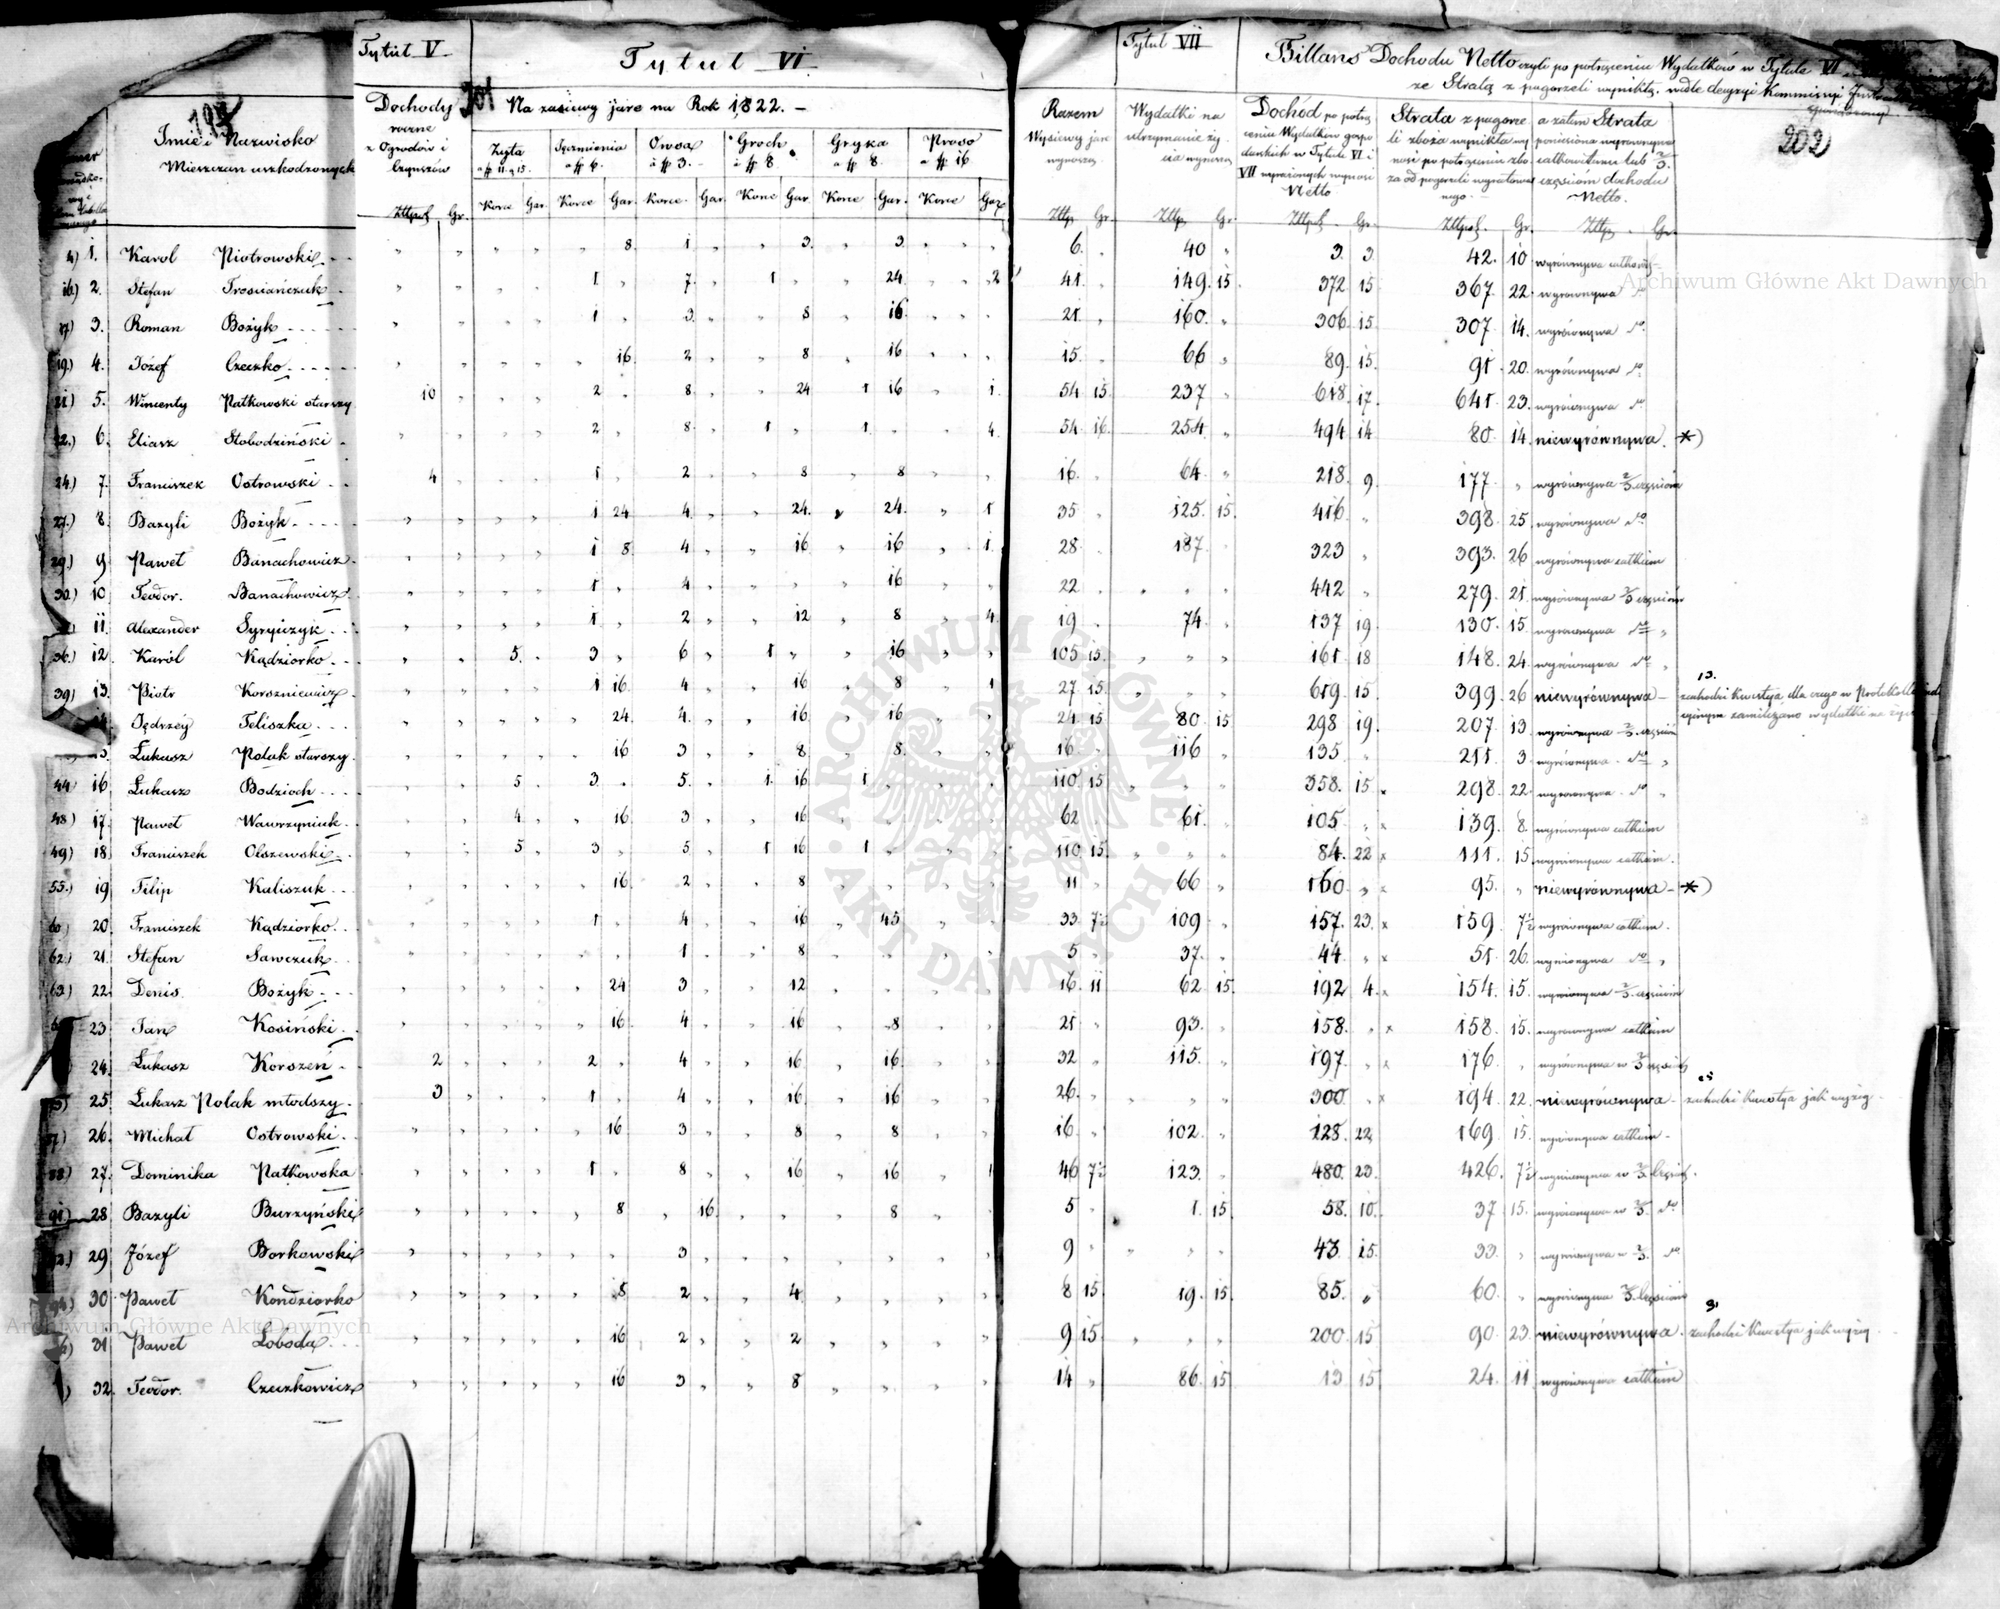 Tytuł V
Tytuł VI
Tytuł VII
Billans Dochodu Netto czyli po potrąceniu Wydatków w Tytule VI
ze Stratą z pogorzeli wynikłą, wedle decyzyi Kommissyi
194
201
202
Imie i Nazwisko
Mieszczan uszkodzonych
Dochody
roczne
z Ogrodów i
Czynszów
Na zasiewy jare na Rok 1822. –
Żyta
Jęczmienia
à ff 6.
Owsa
à ff 3.
Groch
à ff 8
Gryka
a ff 8.
Proso
a ff 16
Razem
Wysiewy jare
wynoszą
Wydatki na
utrzymanie ży-
cia wynoszą
Dochód po potrą
ceniu Wydatków gospo
darskich w Tytule VI i
VII wyrażonych wynosi
Netto
Strata z pogorze
li zboża wynikła wy
nosi po potrąceniu zbo
ża od pogorzeli wyratowa
nego
a zatem Strata
poniesiona wyrównywa
całkowitemu lub 2/3
częsiom dochodu
Netto.
Złtpol. Gr. Korce Gar. Korce Gar. Korce Gar. Korce Gar. Korce Gar. Korce Gar
Złtp. Gr. Złtp. Gr. Złtpol. Gr. Złtpol. Gr. Złtp. Gr.
4) 1. Karol Piotrowski 8 1 3 3 6. 40 3. 3. 42. 10 wyrównywa
16) 2. Stefan Trosiańczuk 1 7 1 24 2 41. 149. 15 372 15 367. 22 wyrównywa do
17) 3. Roman Bożyk 1 3 8 16 21. 160. 306. 15. 307 14. wyrównywa do
19) 4. Józef Czeczko 16 2 8 16 15. 66 89. 15. 91. 20. wyrównywa do
21) 5. Wincenty Patkowski starszy 10 2 8 24 1 16 1 54 15. 237 618. 17. 641. 23. wyrównywa do
22.) 6. Eliasz Słobodziński 2 8 1 1 4 54 16. 254. 494 14 80. 14. niewyrównywa. *)
24.) 7. Franciszek Ostrowski 4 1 2 8 8 16. 64. 218. 9. 177 wyrównywa 2/3 częsiom
27.) 8. Bazyli Bożyk 1 24 4 24. 24. 1 35 125. 15. 416 398. 25 wyrównywa do
29.) 9. Paweł Banachowicz 1 8 4 16 16 1 28 187 323 393. 26 wyrównywa całkiem
30.) 10. Teodor. Banachowicz 1 4 16 22 442 279. 21. wyrównywa 2/3 częsiom
11. Alexander Syryiczyk 1 2 12 8 4 19 74. 137 19 130. 15. wyrównywa do
36.) 12. Karól Kądziorko 5. 3 6 1 16 105 15. 161 18 148. 24. wyrównywa do
39) 13. Piotr Korszniewicz 1 16. 4 16 8 1 27 15. 619. 15. 399. 26 niewyrównywa –
13. zachodzi kwestya, dla czego w Protokolle
zamilczano wydatki na życie
Jędrzéy Feliszka 24. 4. 16. 16 24 15 80. 15 298 19. 207. 13 wyrównywa 2/3. częsiom
Łukasz Polak starszy. 16 3 8 8. 16. 116 135. 211 3. wyrównywa do
44 16. Łukasz Bodzioch 5 3 5. 1. 16 1 110. 15 358. 15 298. 22 wyrównywa do
48) 17. Paweł Wawrzyniuk 4 16 3 16 62 61. 105. 139. 8. wyrównywa całkiem
49) 18. Franciszek Olszewski 5 3 5 1 16 1 110. 15. 84. 22 111. 15. wyrównywa całkiem.
55.) 19. Filip Kaliszuk 16 2 8 11 66 160 95. niewyrównywa – *)
60) 20. Franciszek Kądziorko. 1 4 16 45 33. 7½ 109 157. 23. 159. 7½ wyrównywa całkiem.
62.) 21. Stefan Sawczuk 1 8 5 37. 44 51. 26. wyrównywa do
63.) 22. Denis Bożyk 24 3 12 16. 11 62 15. 192 4. 154. 15. wyrównywa 2/3. częsiom
23. Jan Kosiński 16. 4 16 8 21 93. 158. 158. 15. wyrównywa całkiem
24. Łukasz Korszeń 2 2 4 16 16 32 115. 197. 176 wyrównywa w 2/3 częsiach
25. Łukasz Polak młodszy. 3 1 4 16 16 26. 300. 194. 22. niewyrównywa – zachodzi kwestya jak wyżéy.
26. Michał Ostrowski 16. 3 8 8 16 102. 128. 22 169. 15. wyrównywa całkiem –
88) 27. Dominika Patkowska 1 8 16 16 1 46 7½ 123. 480. 23. 426. 7½ wyrównywa w 2/3. Częsi.
91.) 28. Bazyli Burzyński 8 16. 8 5 1. 15. 58. 10. 37 15. wyrównywa w 2/3. do
29. Józef Borkowski 3 9 43 15. 33. wyrównywa w 2/3. do
94.) 30. Paweł Kondziorko 8 2 4 8 15 19. 15. 85. 60. wyrównywa 2/3. Częsiom
31. Paweł Łoboda 16 2 2 9 15. 200. 15 90. 23. niewyrównywa. zachodzi kwestya jak wyżéy
32. Teodor. Czeczkowicz 16 3 8 14 86. 15 13 15 24. 11 wyrównywa całkiem
Archiwum Główne Akt Dawnych
Archiwum Główne Akt Dawnych
ARCHIWUM GŁÓWNE · AKT DAWNYCH ·